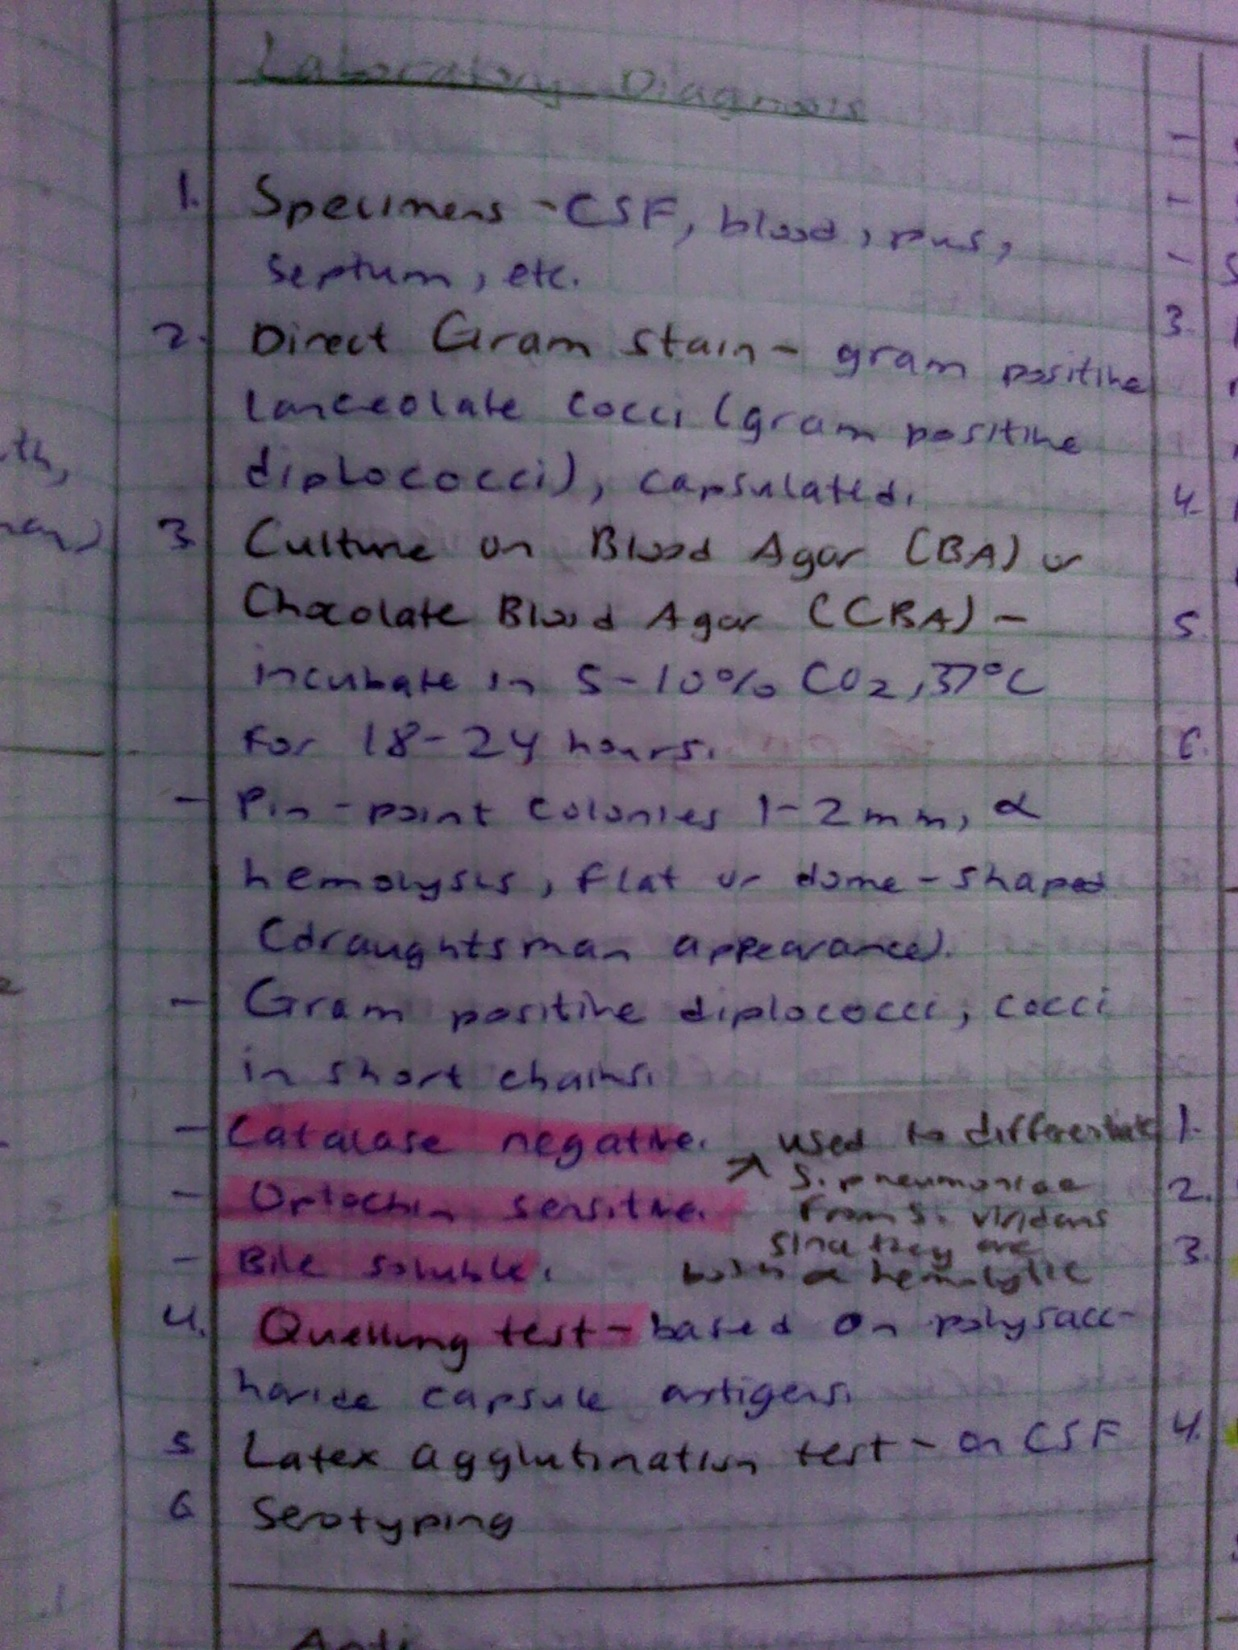 Laboratory Diagnosis
1. Specimens - CSF, blood, pus,
septum, etc.
2. Direct Gram stain - gram positive
lanceolate cocci (gram positive
diplococci), capsulated.
3. Culture on Blood Agar (BA) or
Chocolate Blood Agar (CCBA) -
incubate in 5-10% CO2, 37°C
for 18-24 hours.
- Pin-point colonies 1-2mm, α
hemolysis, flat or dome-shaped
(draughtsman appearance).
- Gram positive diplococci, cocci
in short chains.
- Catalase negative. → used to differentiate
- Optochin sensitive. S. pneumoniae
from S. viridans
since they are
- Bile soluble. both α hemolytic
4. Quelling test - based on polysacc-
haride capsule antigens.
5 Latex agglutination test - on CSF
6 Serotyping
th,
3.
4.
5.
6.
1.
2.
3.
4.